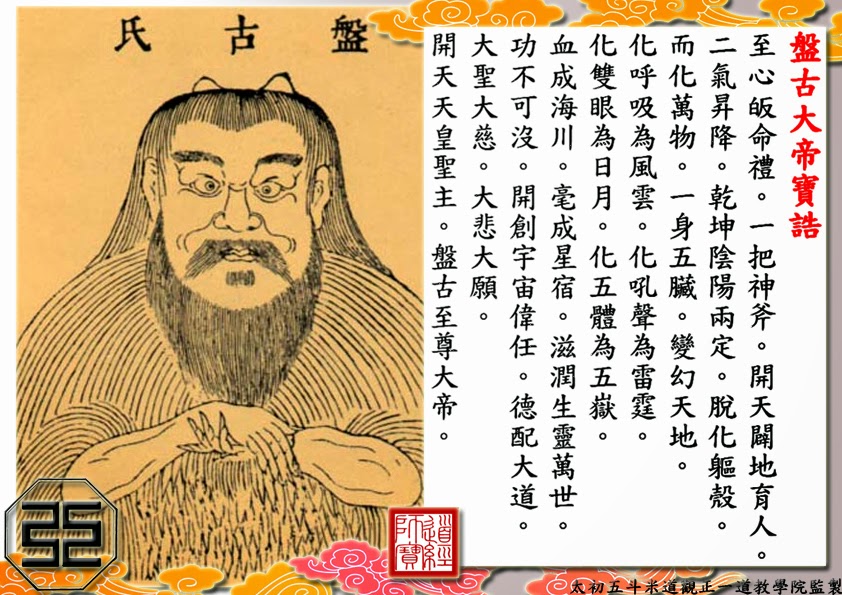 盤古氏
盤古大帝寶誥
至心皈命禮。一把神斧。開天闢地育人。
二氣昇降。乾坤陰陽兩定。脫化軀殼。
而化萬物。一身五臟。變幻天地。
化呼吸為風雲。化吼聲為雷霆。
化雙眼為日月。化五體為五嶽。
血成海川。毫成星宿。滋潤生靈萬世。
功不可沒。開創宇宙偉任。德配大道。
大聖大慈。大悲大願。
開天天皇聖主。盤古至尊大帝。
道經師寶
太初五斗米道觀正一道教學院監製